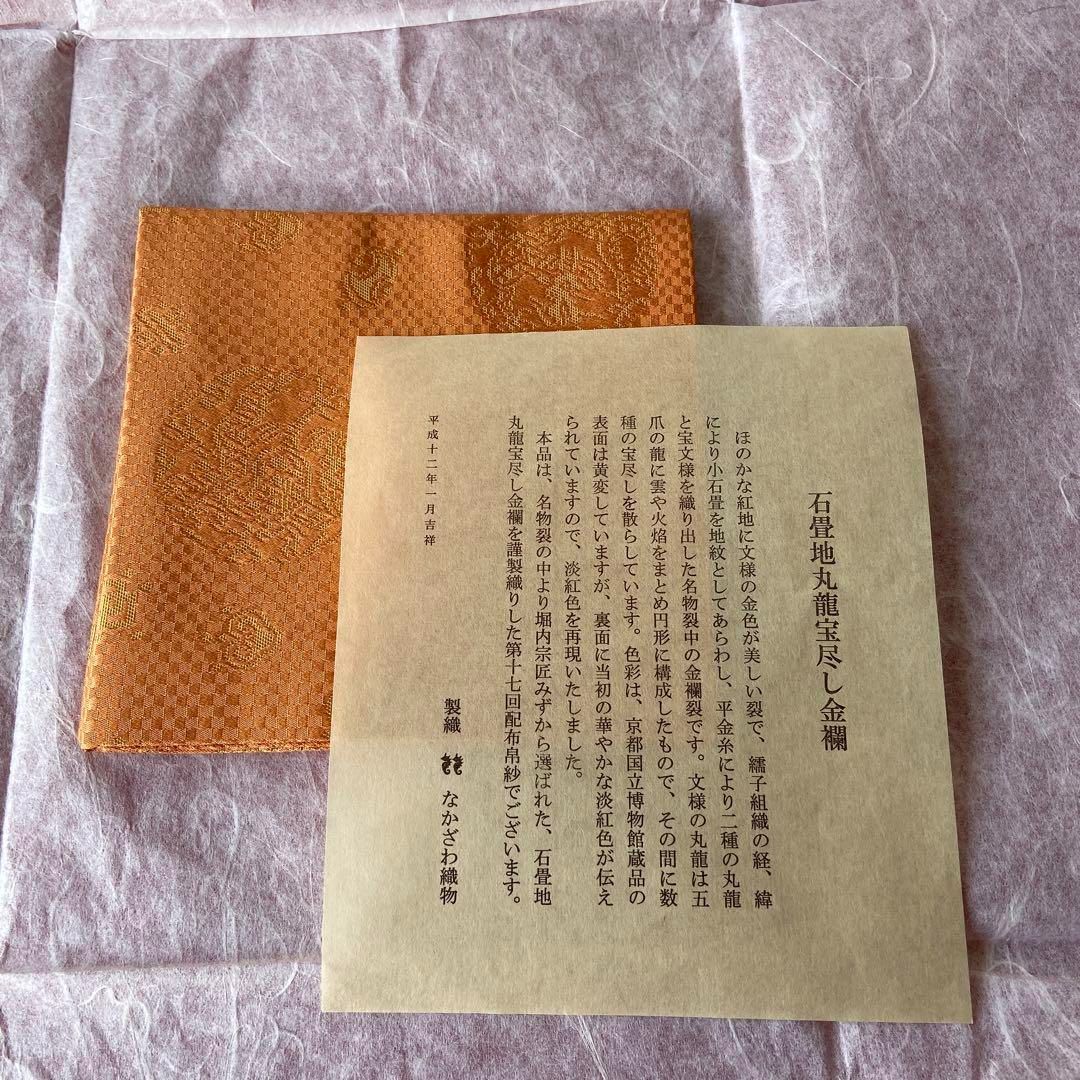 石畳地丸龍宝尽し金襴
ほのかな紅地に文様の金色が美しい裂で、繻子組織の経、緯
により小石畳を地紋としてあらわし、平金糸により二種の丸龍
と宝文様を織り出した名物裂中の金襴裂です。文様の丸龍は五
爪の龍に雲や火焔をまとめ円形に構成したもので、その間に数
種の宝尽しを散らしています。色彩は、京都国立博物館蔵品の
表面は黄変していますが、裏面に当初の華やかな淡紅色が伝え
られていますので、淡紅色を再現いたしました。
本品は、名物裂の中より堀内宗匠みずから選ばれた、石畳地
丸龍宝尽し金襴を謹製織りした第十七回配布帛紗でございます。
製織 なかざわ織物
平成十二年一月吉祥